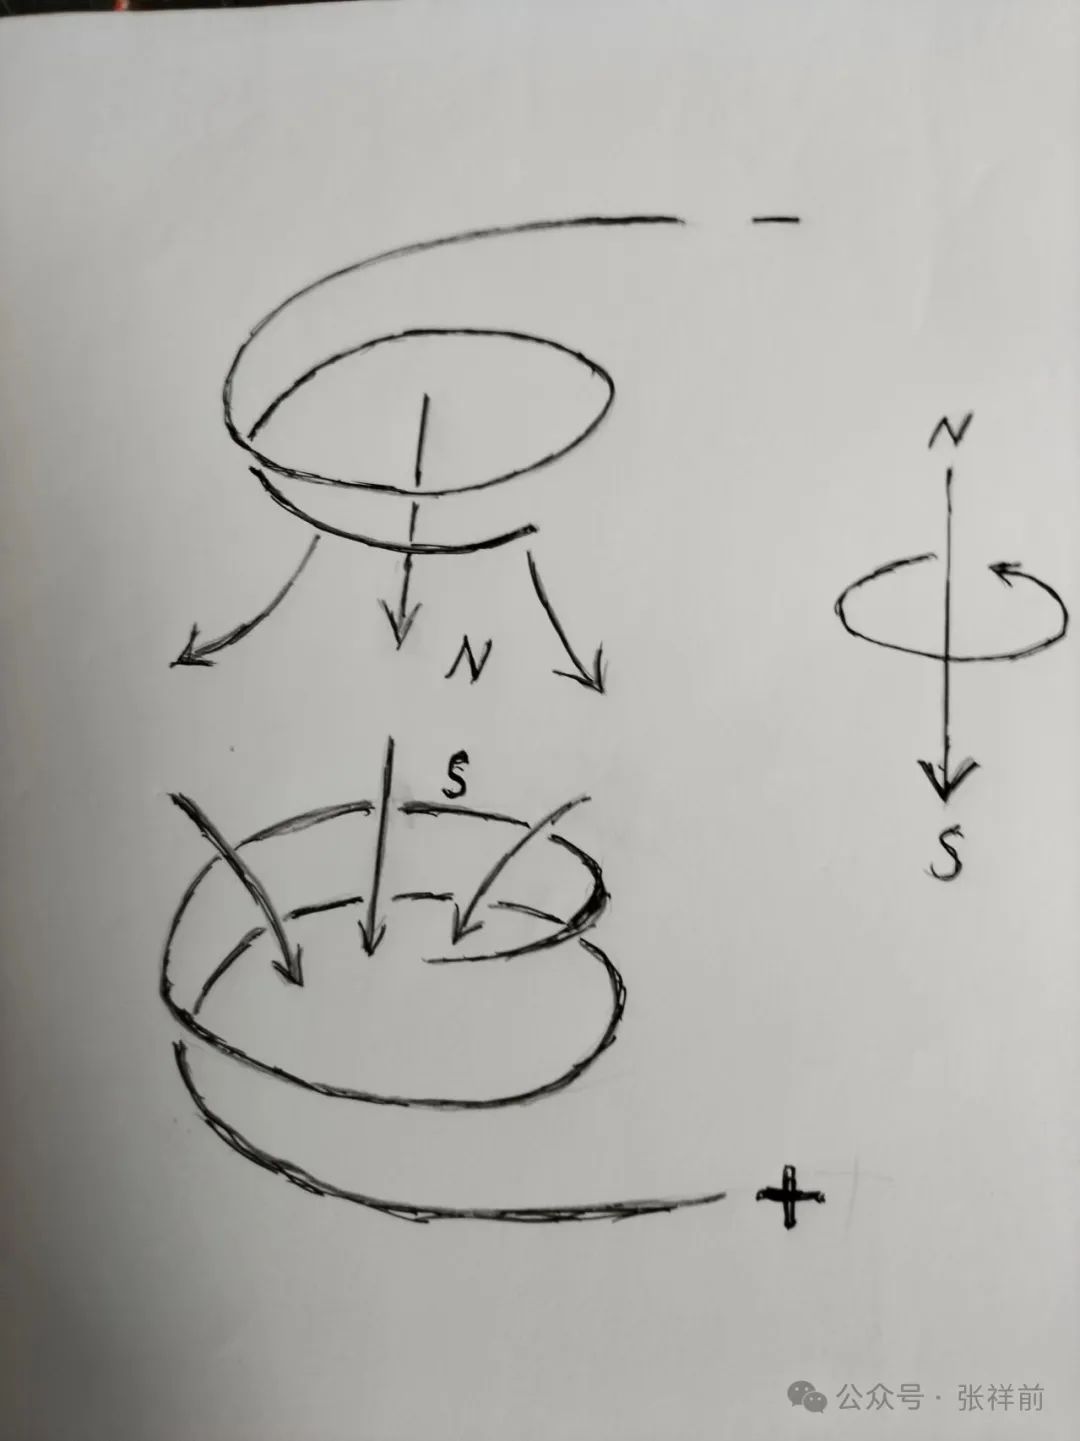 −
N
N
S
S
+
公众号 · 张祥前